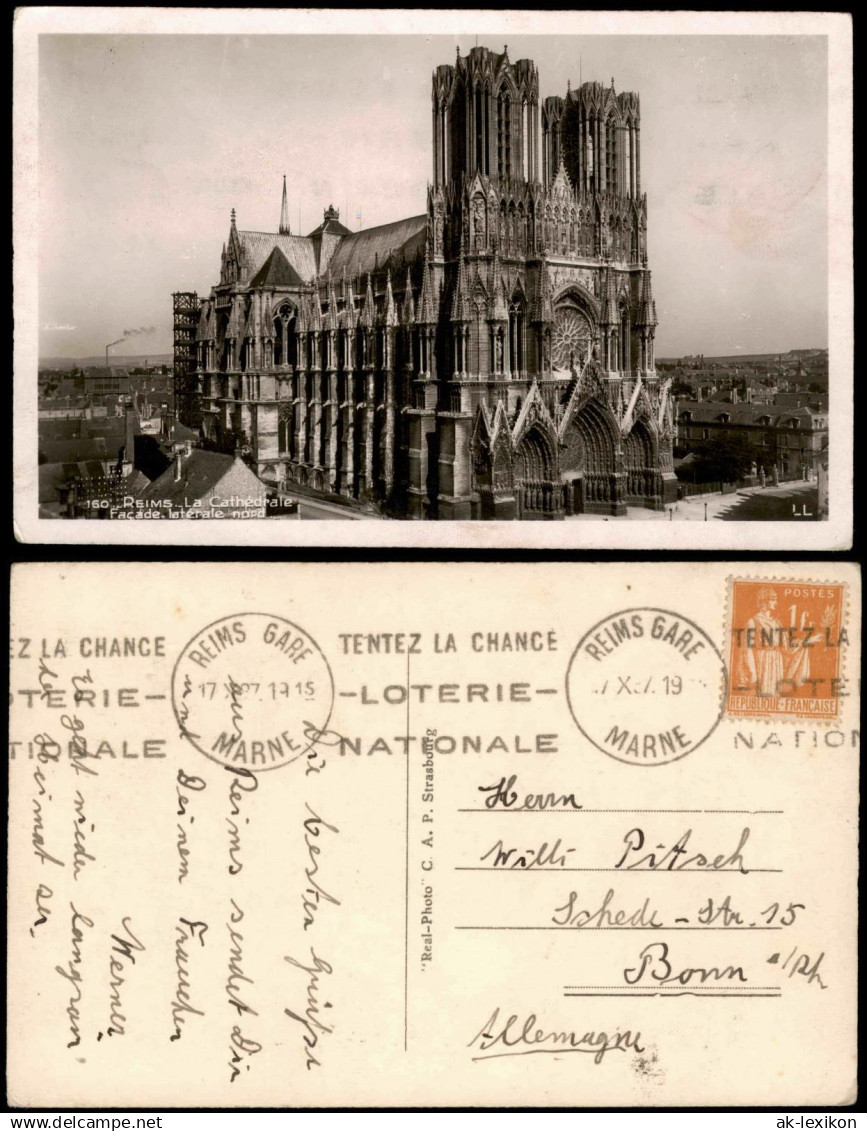 160 _ REIMS _ La CATHÉDRALE
Façade latérale nord
LL
EZ LA CHANCE
OTERIE
TIONALE
REIMS GARE
17 X 37. 19 15
MARNE
TENTEZ LA CHANCE
-LOTERIE-
NATIONALE
REIMS GARE
7 X 37. 19
MARNE
TENTEZ LA
LOTE
NATION
POSTES
1f
REPUBLIQUE-FRANÇAISE
Die besten Grüße
aus Reims sendet Dir
und Deinem Frauchen
Werner
es geht wieder langsam
der Heimat zu.
"Real-Photo" C. A. P. Strasbourg
Herrn
Willi Pitsch
Schede-Str. 15
Bonn a/Rh
Allemagne
www.ansichtskarten-lexikon.de
ak-lexikon